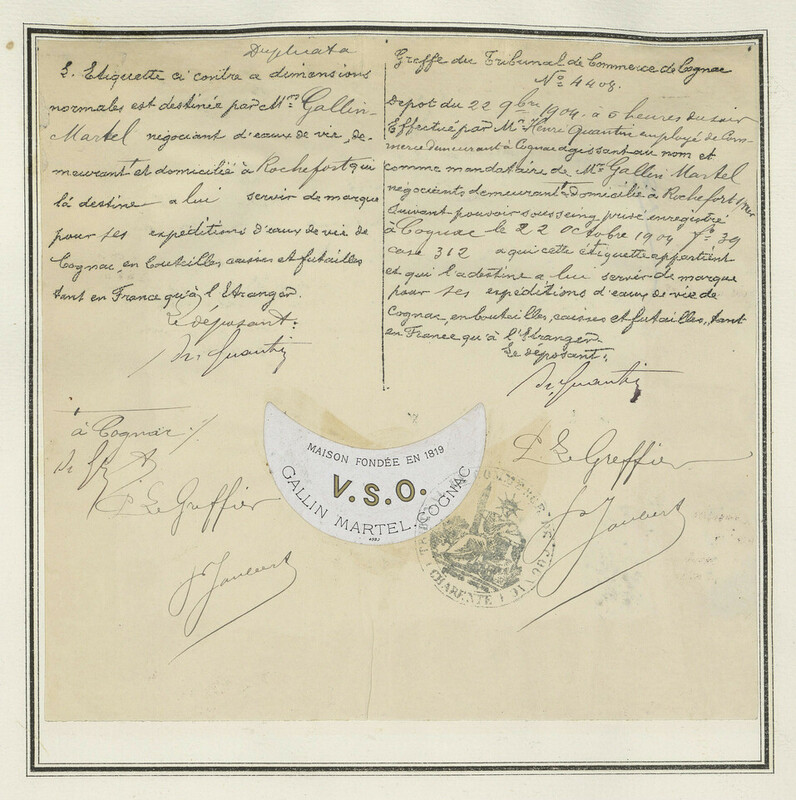 Duplicata
L. Etiquette ci contre a dimensions
normales est destinée par Mrs Gallin-
Martel négociant d'eaux de vie, de-
meurant et domicilié à Rochefort qui
la destine a lui servir de marque
pour ses expéditions d'eaux de vie de
Cognac, en bouteilles caisses et futailles
tant en France qu'à l'Etranger.
Le déposant:
Hri Quantin
à Cognac
P. Le Greffier
Jaubert
Greffe du Tribunal de Commerce de Cognac
No 4408.
Depot du 22 9bre 1904. à 5 heures du soir
Effectué par Mr Henri Quantin employé de Com-
merce demeurant à Cognac agissant au nom et
comme mandataire de Mrs Gallin Martel
négociants demeurant & domicilié à Rochefort s/mer
suivant pouvoir sousseing privé enregistré
à Cognac le 22 Octobre 1904 fo 39
case 312 a qui cette étiquette appartient
et qui l'a destine a lui servir de marque
pour ses expéditions d'eaux de vie de
Cognac, en bouteilles, caisses et futailles, tant
en France qu'à l'Etranger.
Le déposant:
Hri Quantin
P. Le Greffier
Jaubert
MAISON FONDÉE EN 1819
V.S.O.
GALLIN MARTEL. COGNAC
TRIBUNAL DE COMMERCE DE COGNAC
(CHARENTE)